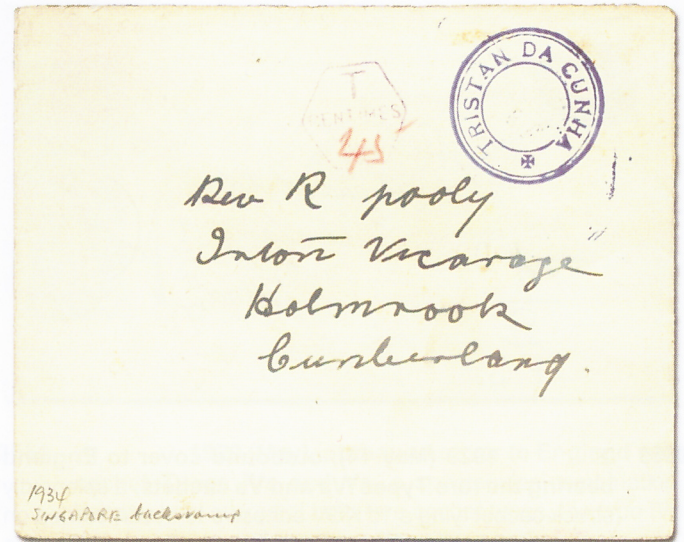 TRISTAN DA CUNHA
T
CENTIMES
45
Rev R pooly
Inton Vicarage
Holmrook
Cumberland.
1934
SINGAPORE backstamp